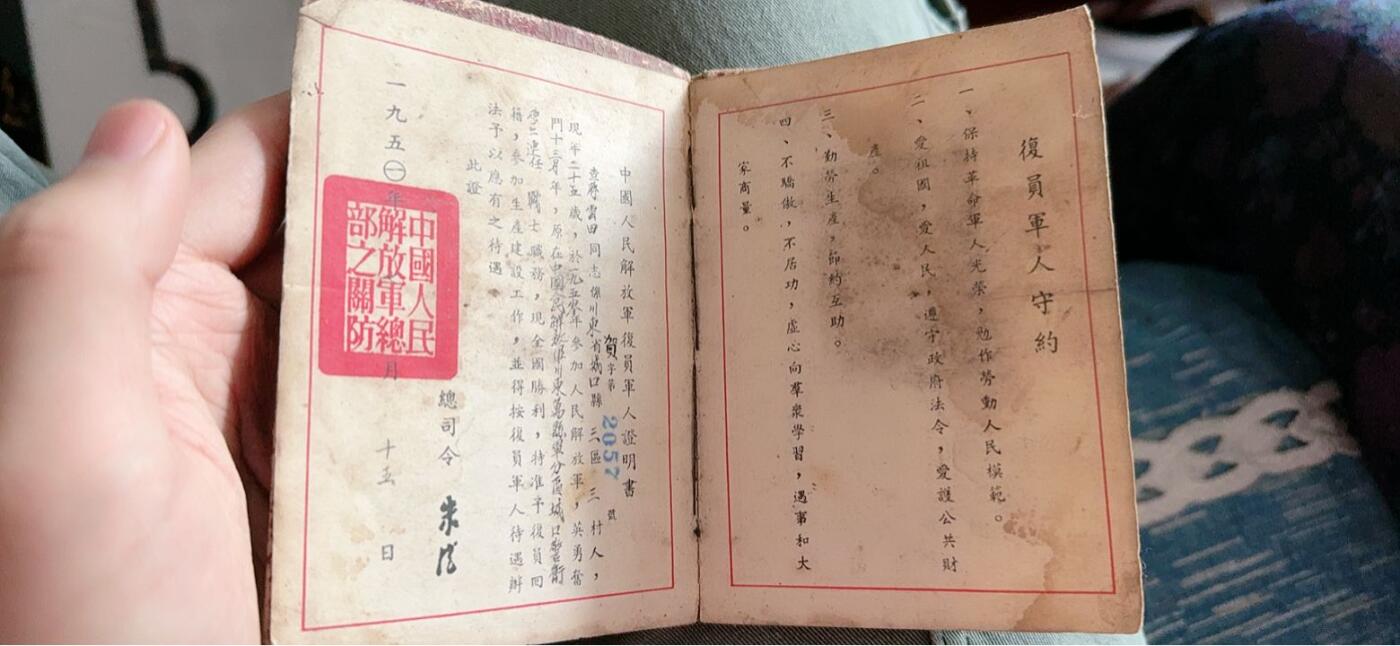 復員軍人守約
一、保持革命軍人光榮，勉作勞動人民模範。
二、愛祖國，愛人民，遵守政府法令，愛護公共財
產。
三、勤勞生產，節約互助。
四、不驕傲，不居功，虛心向羣衆學習，遇事和大
家商量。
中國人民解放軍復員軍人證明書
賀字第2057號
查蔣雲田同志係川東省城口縣三區三村人，
現年二十五歲，於一九五零年參加人民解放軍，英勇奮
鬥十三月年，原在中國人民解放軍川東萬縣軍分區城口警衛
二連任戰士職務，現全國勝利，特准予復員回
籍，參加生產建設工作，並得按復員軍人待遇辦
法予以應有之待遇。
此證
總司令 朱德
一九五㊀年 月十五日
中國人民
解放軍總
部之關防